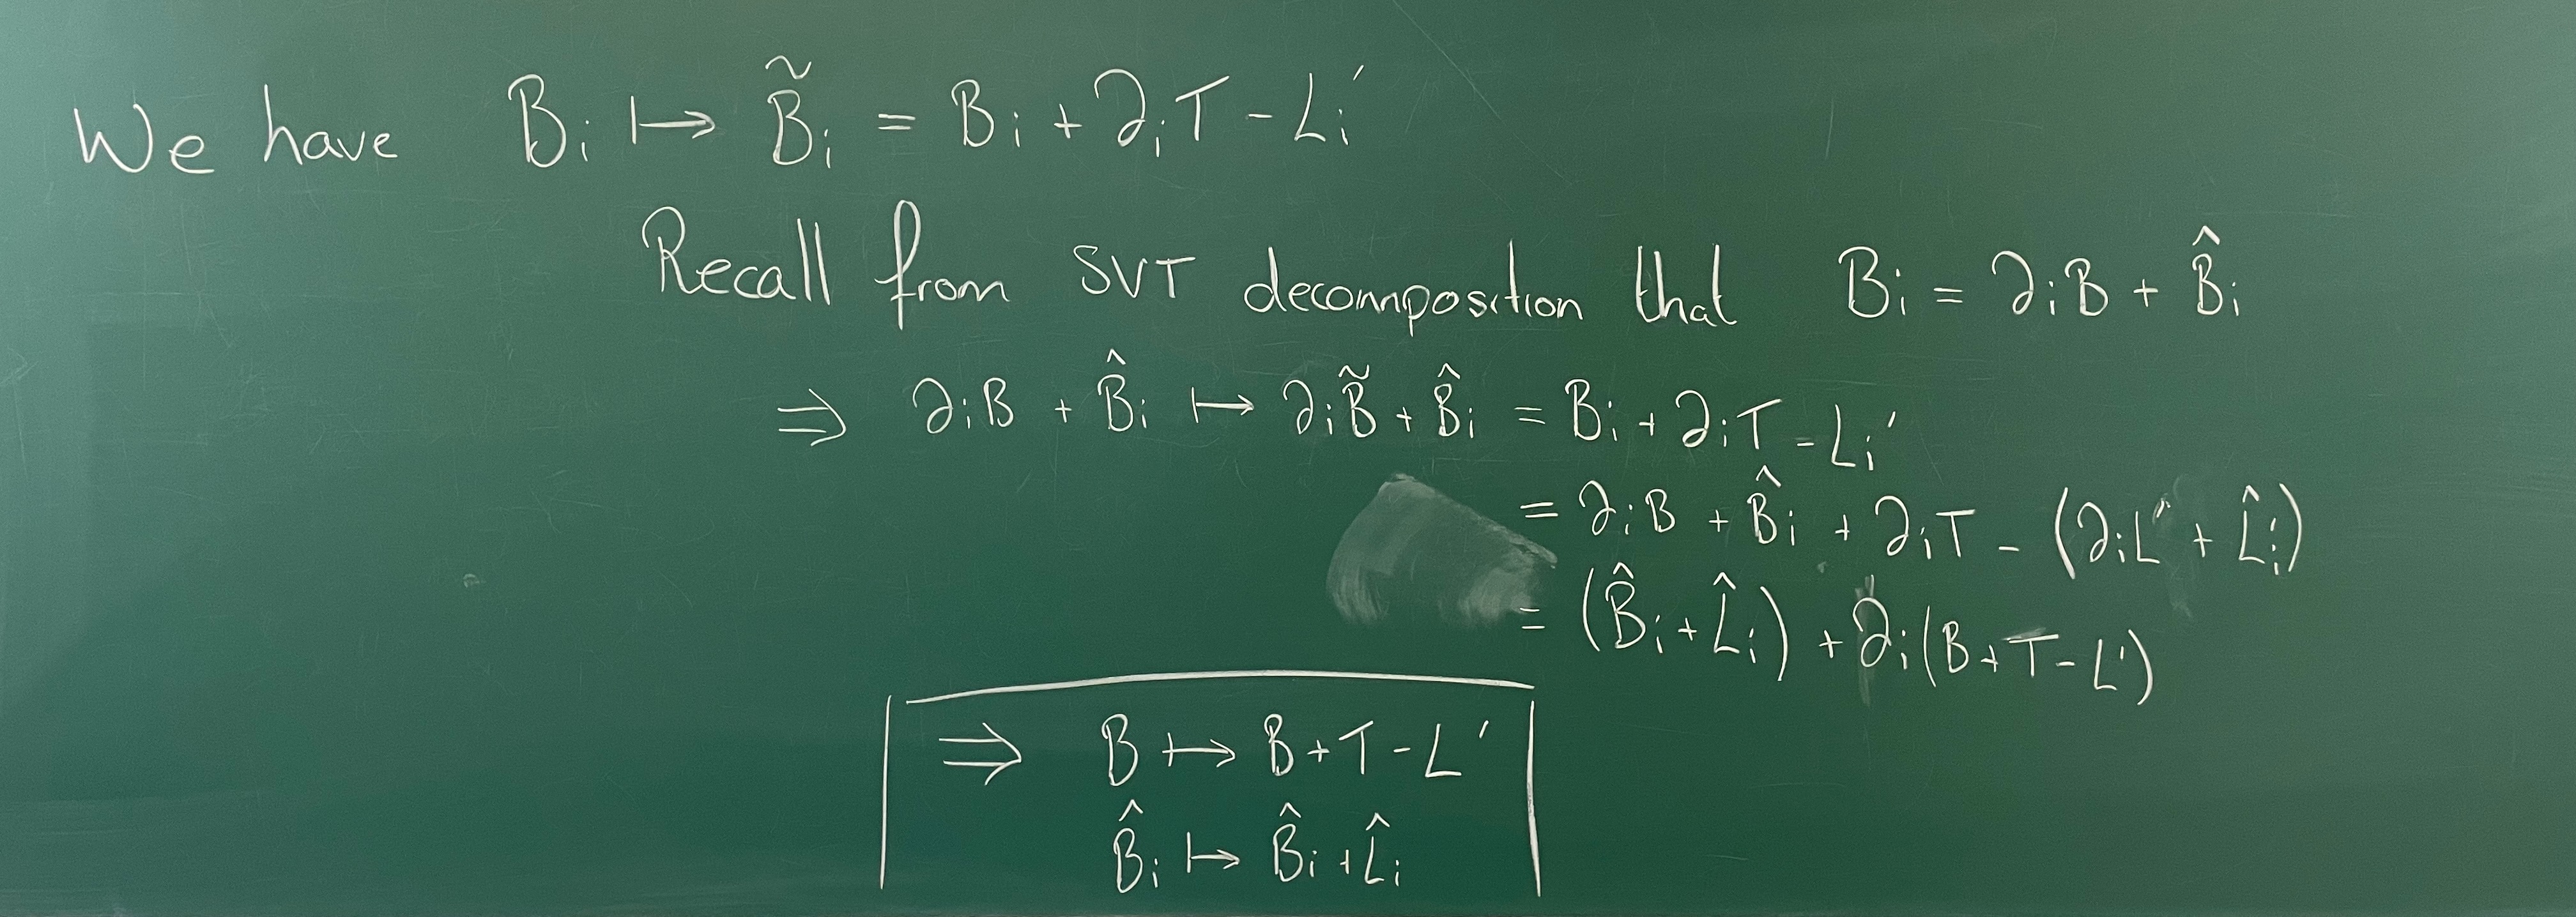 We have B_i ↦ B̃_i = B_i + ∂_i T - L_i'
Recall from SVT decomposition that B_i = ∂_i B + B̂_i
⇒ ∂_i B + B̂_i ↦ ∂_i B̃ + B̂_i = B_i + ∂_i T - L_i'
= ∂_i B + B̂_i + ∂_i T - (∂_i L' + L̂_i)
= (B̂_i + L̂_i) + ∂_i (B + T - L')
⇒ B ↦ B + T - L'
B̂_i ↦ B̂_i + L̂_i